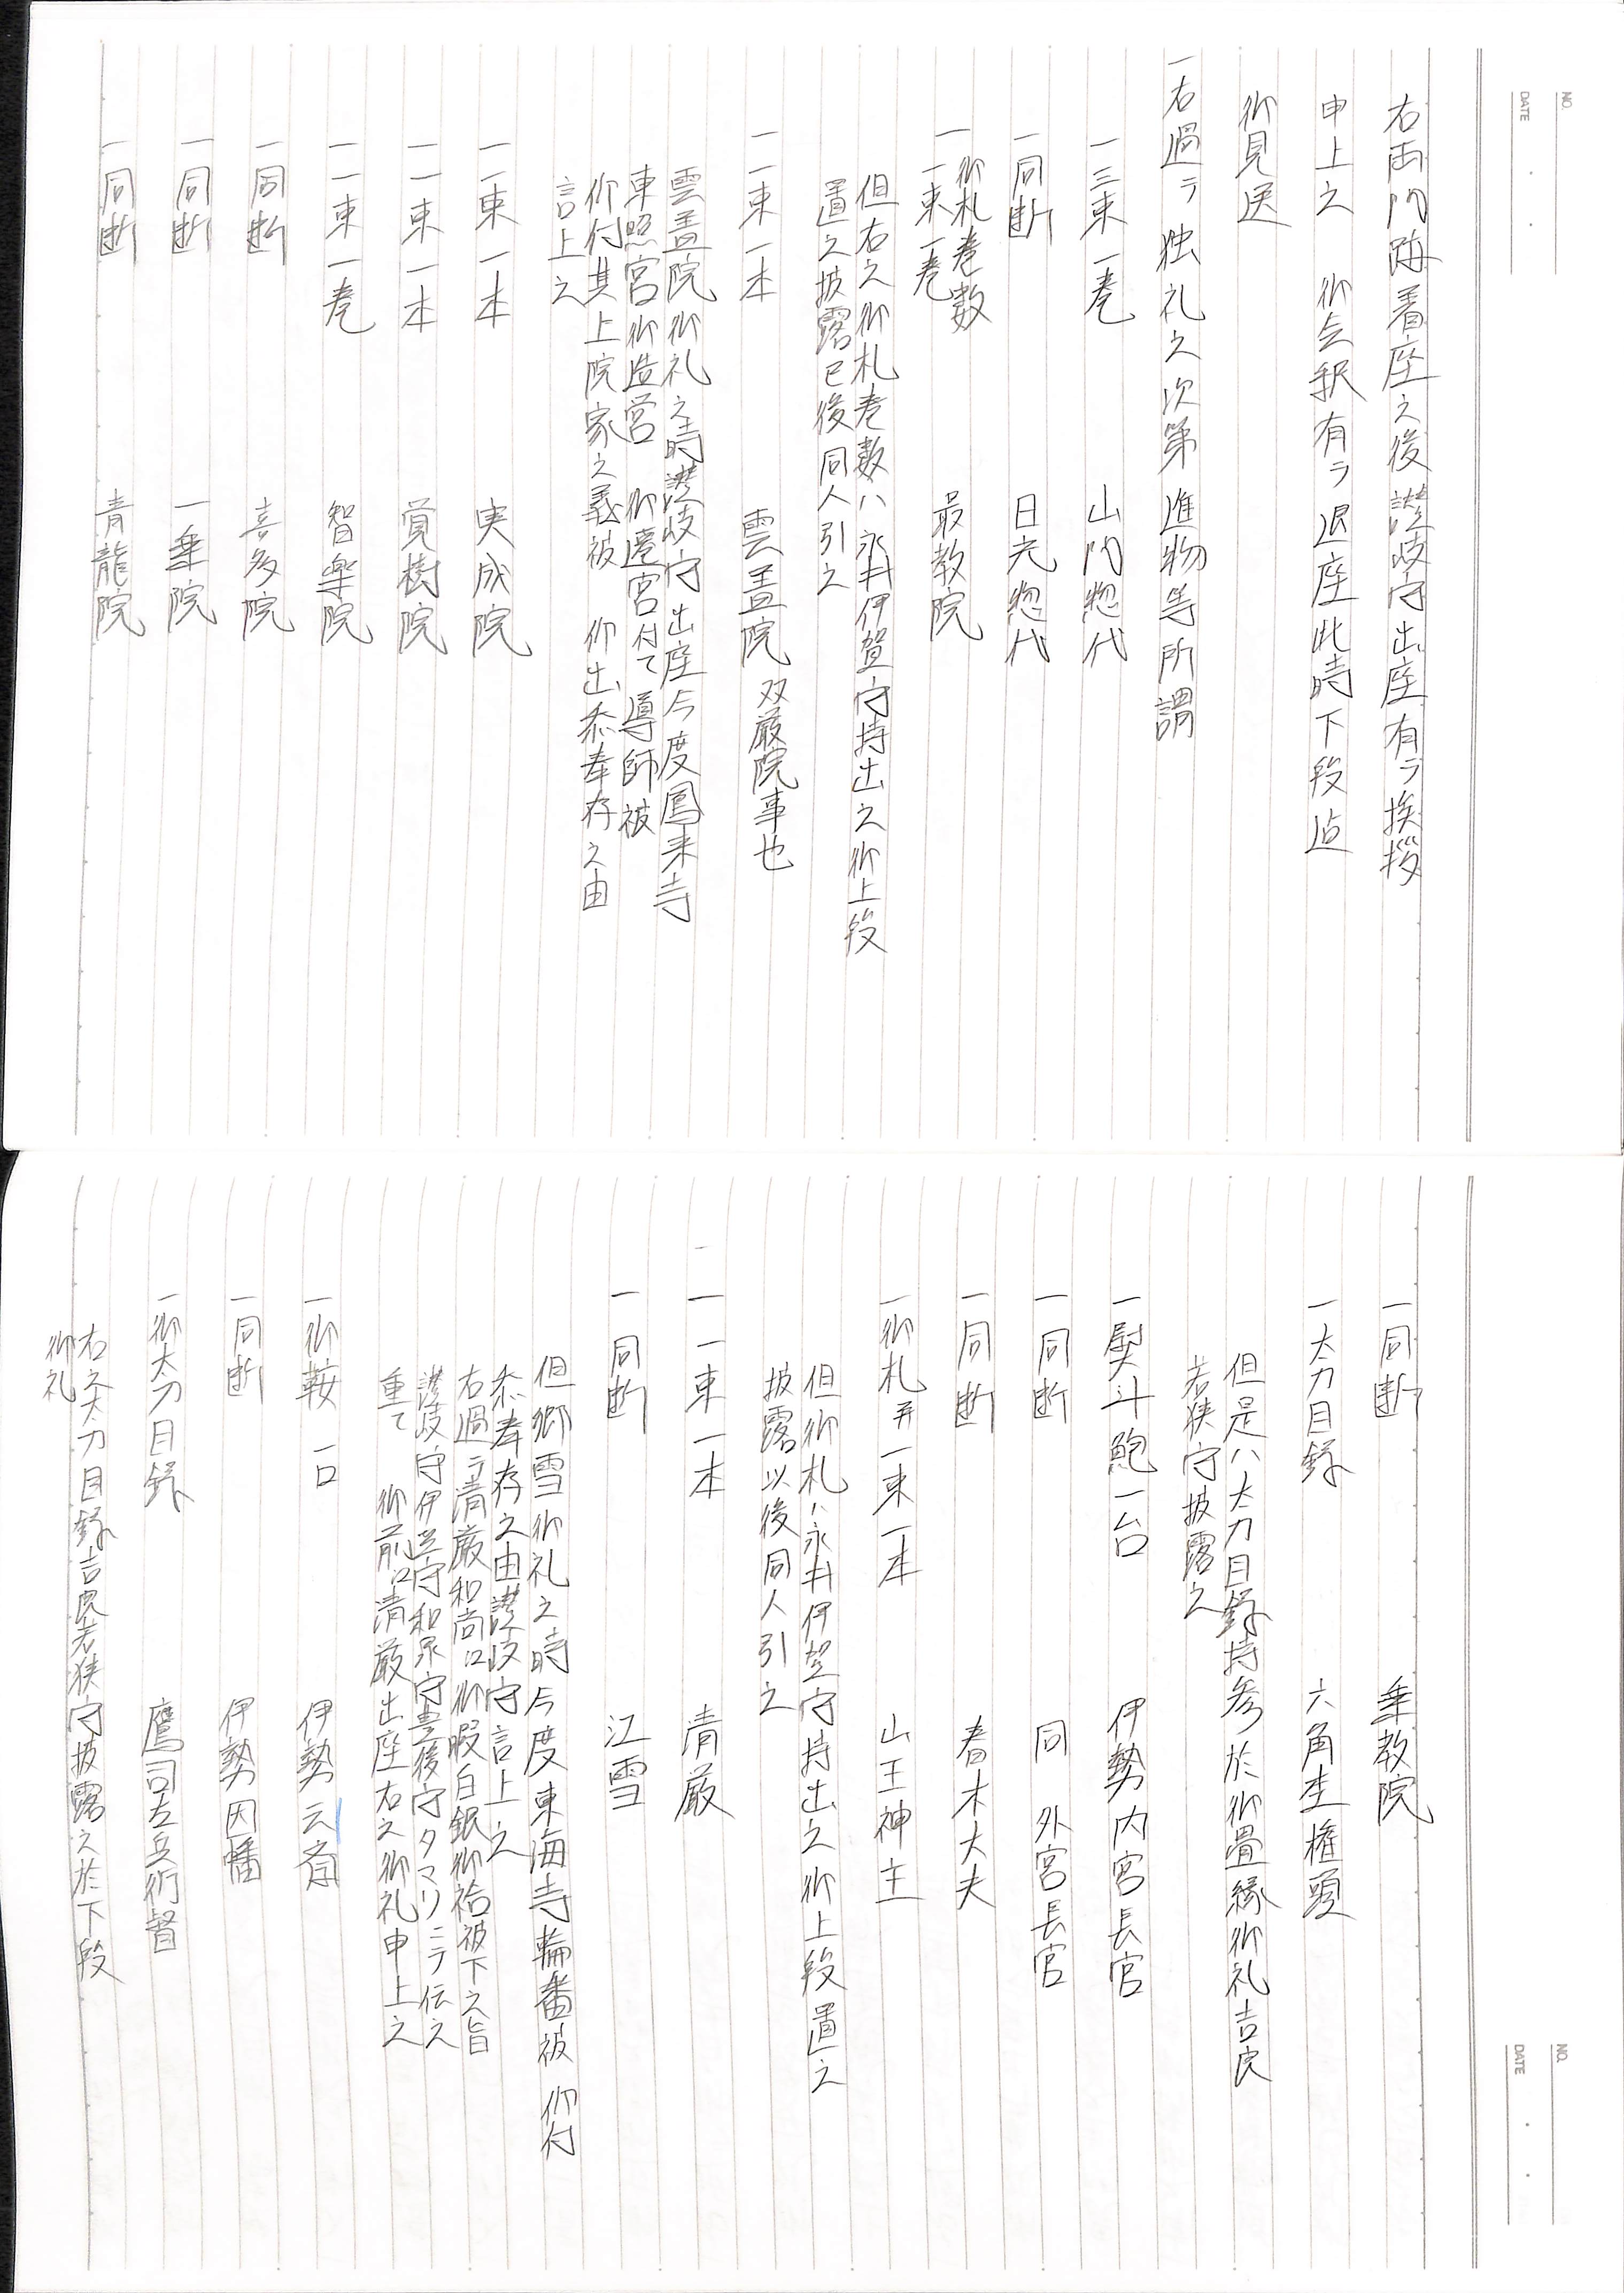 NO.
DATE
右両門跡着座之後讃岐守出座有ヲ挨拶
申上之　御会釈有ヲ退座此時下段迠
御見送
一右過ヲ独礼之次第進物等所謂
一三束一巻　山門惣代
一同断　日光惣代
一御札巻数
一束一巻　最教院
但右之御札巻数ハ永井伊賀守持出之御上段
置之披露已後同人引之
一一束一本　雲蓋院　双厳院事也
雲蓋院御礼之時讃岐守出座今度鳳来寺
東照宮御造営　御遷宮付て導師被
仰付其上院家之義被　仰出忝奉存之由
言上之
一一束一本　実成院
一一束一本　覚樹院
一一束一巻　智楽院
一同断　喜多院
一同断　一乗院
一同断　青龍院
NO.
DATE
一同断　乗教院
一太刀目録　六角杢権頭
但是ハ太刀目録持参於御畳縁御礼吉良
若狭守披露之
一熨斗鮑一台　伊勢内宮長官
一同断　同　外宮長官
一同断　春木大夫
一御札并一束一本　山王神主
但御札ハ永井伊賀守持出之御上段置之
披露以後同人引之
一一束一本　清厳
一同断　江雪
但郷雪御礼之時今度東海寺輪番被　仰付
忝奉存之由讃岐守言上之
右過ヲ清厳和尚江御暇白銀御袷被下之旨
讃岐守伊豆守和泉守豊後守タマリニヲ伝之
重て　御前江清厳出座右之御礼申上之
一御鞍一口　伊勢云斎
一同断　伊勢因幡
一御太刀目録　鷹司左兵衛督
右之太刀目録吉良若狭守披露之於下段
御礼